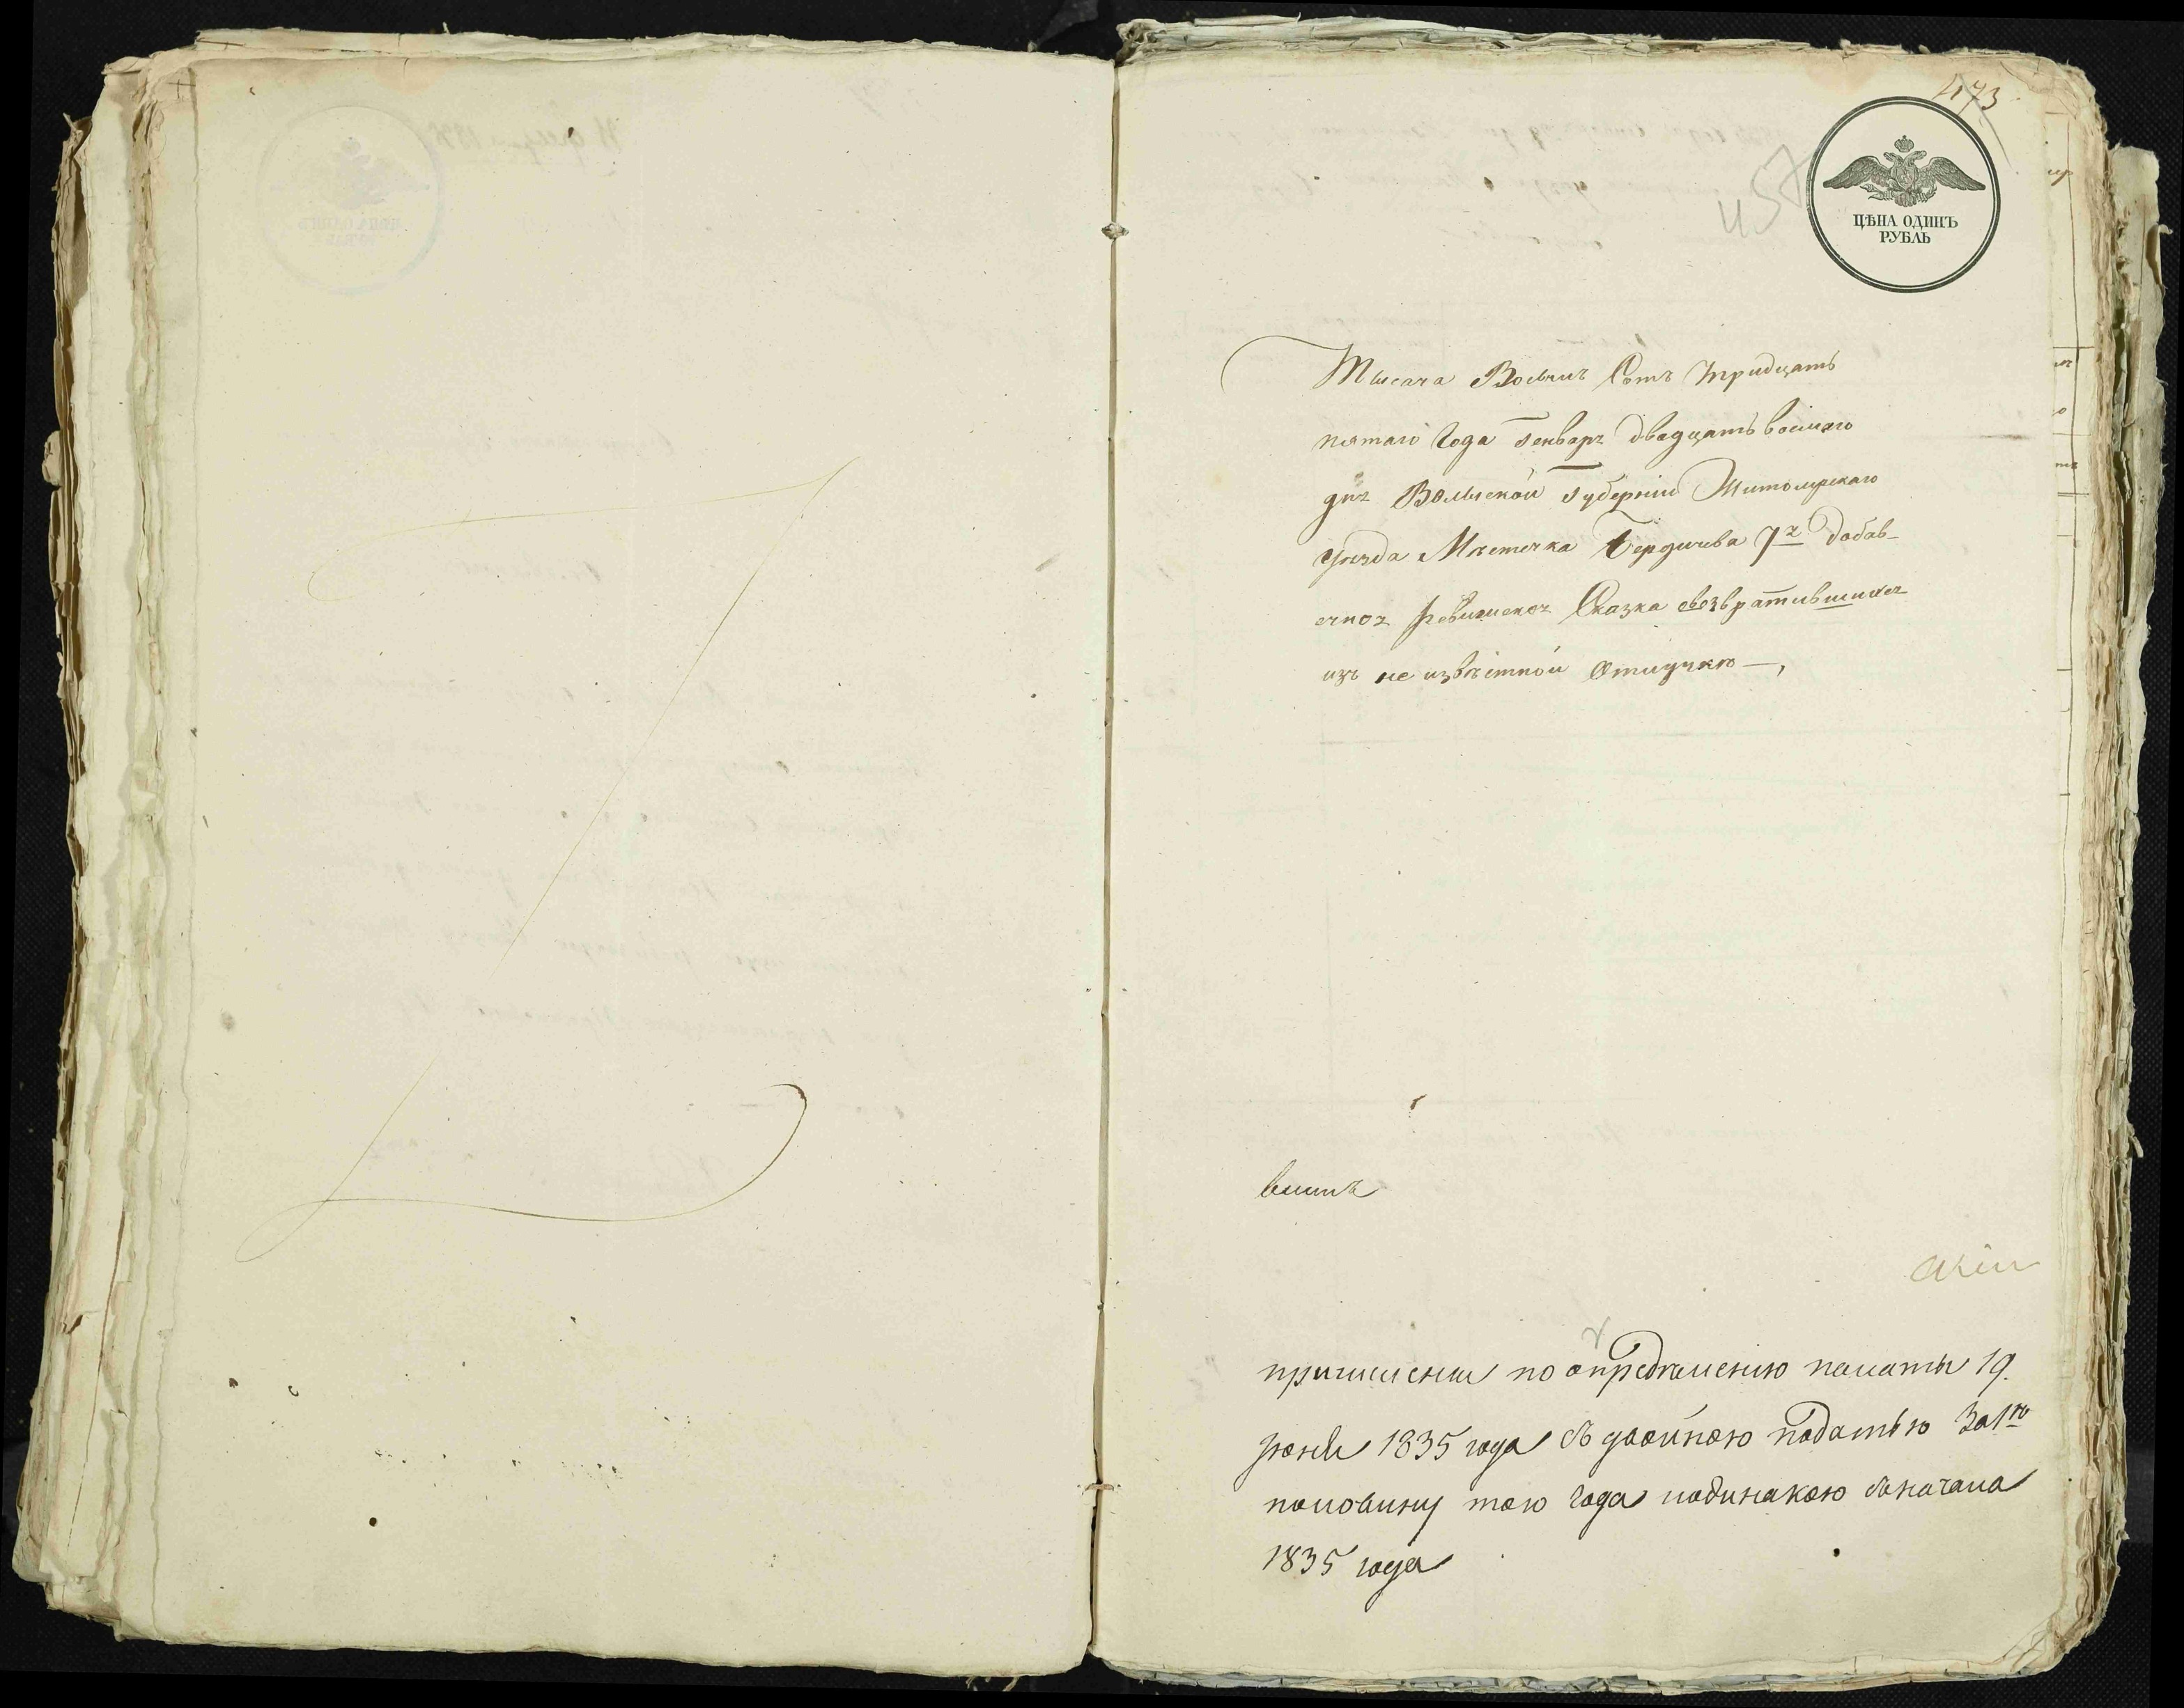 473
457
ЦѢНА ОДИНЪ
РУБЛЬ
Тысяча Восемь Сотъ тридцать
пятаго Года Генваря двадцать восмаго
дня Волынской Губерніи Житомирскаго
уѣзда Мѣстечка Бердичева 7я Добав-
очноя ревизская Сказка овозвратившихся
изъ не извѣстной Отлучки —,
причислены по опредѣленію палаты 19.
Іюня 1835 года съ двойною податью За 1ю
половину того Года иодинакою съначала
1835 года